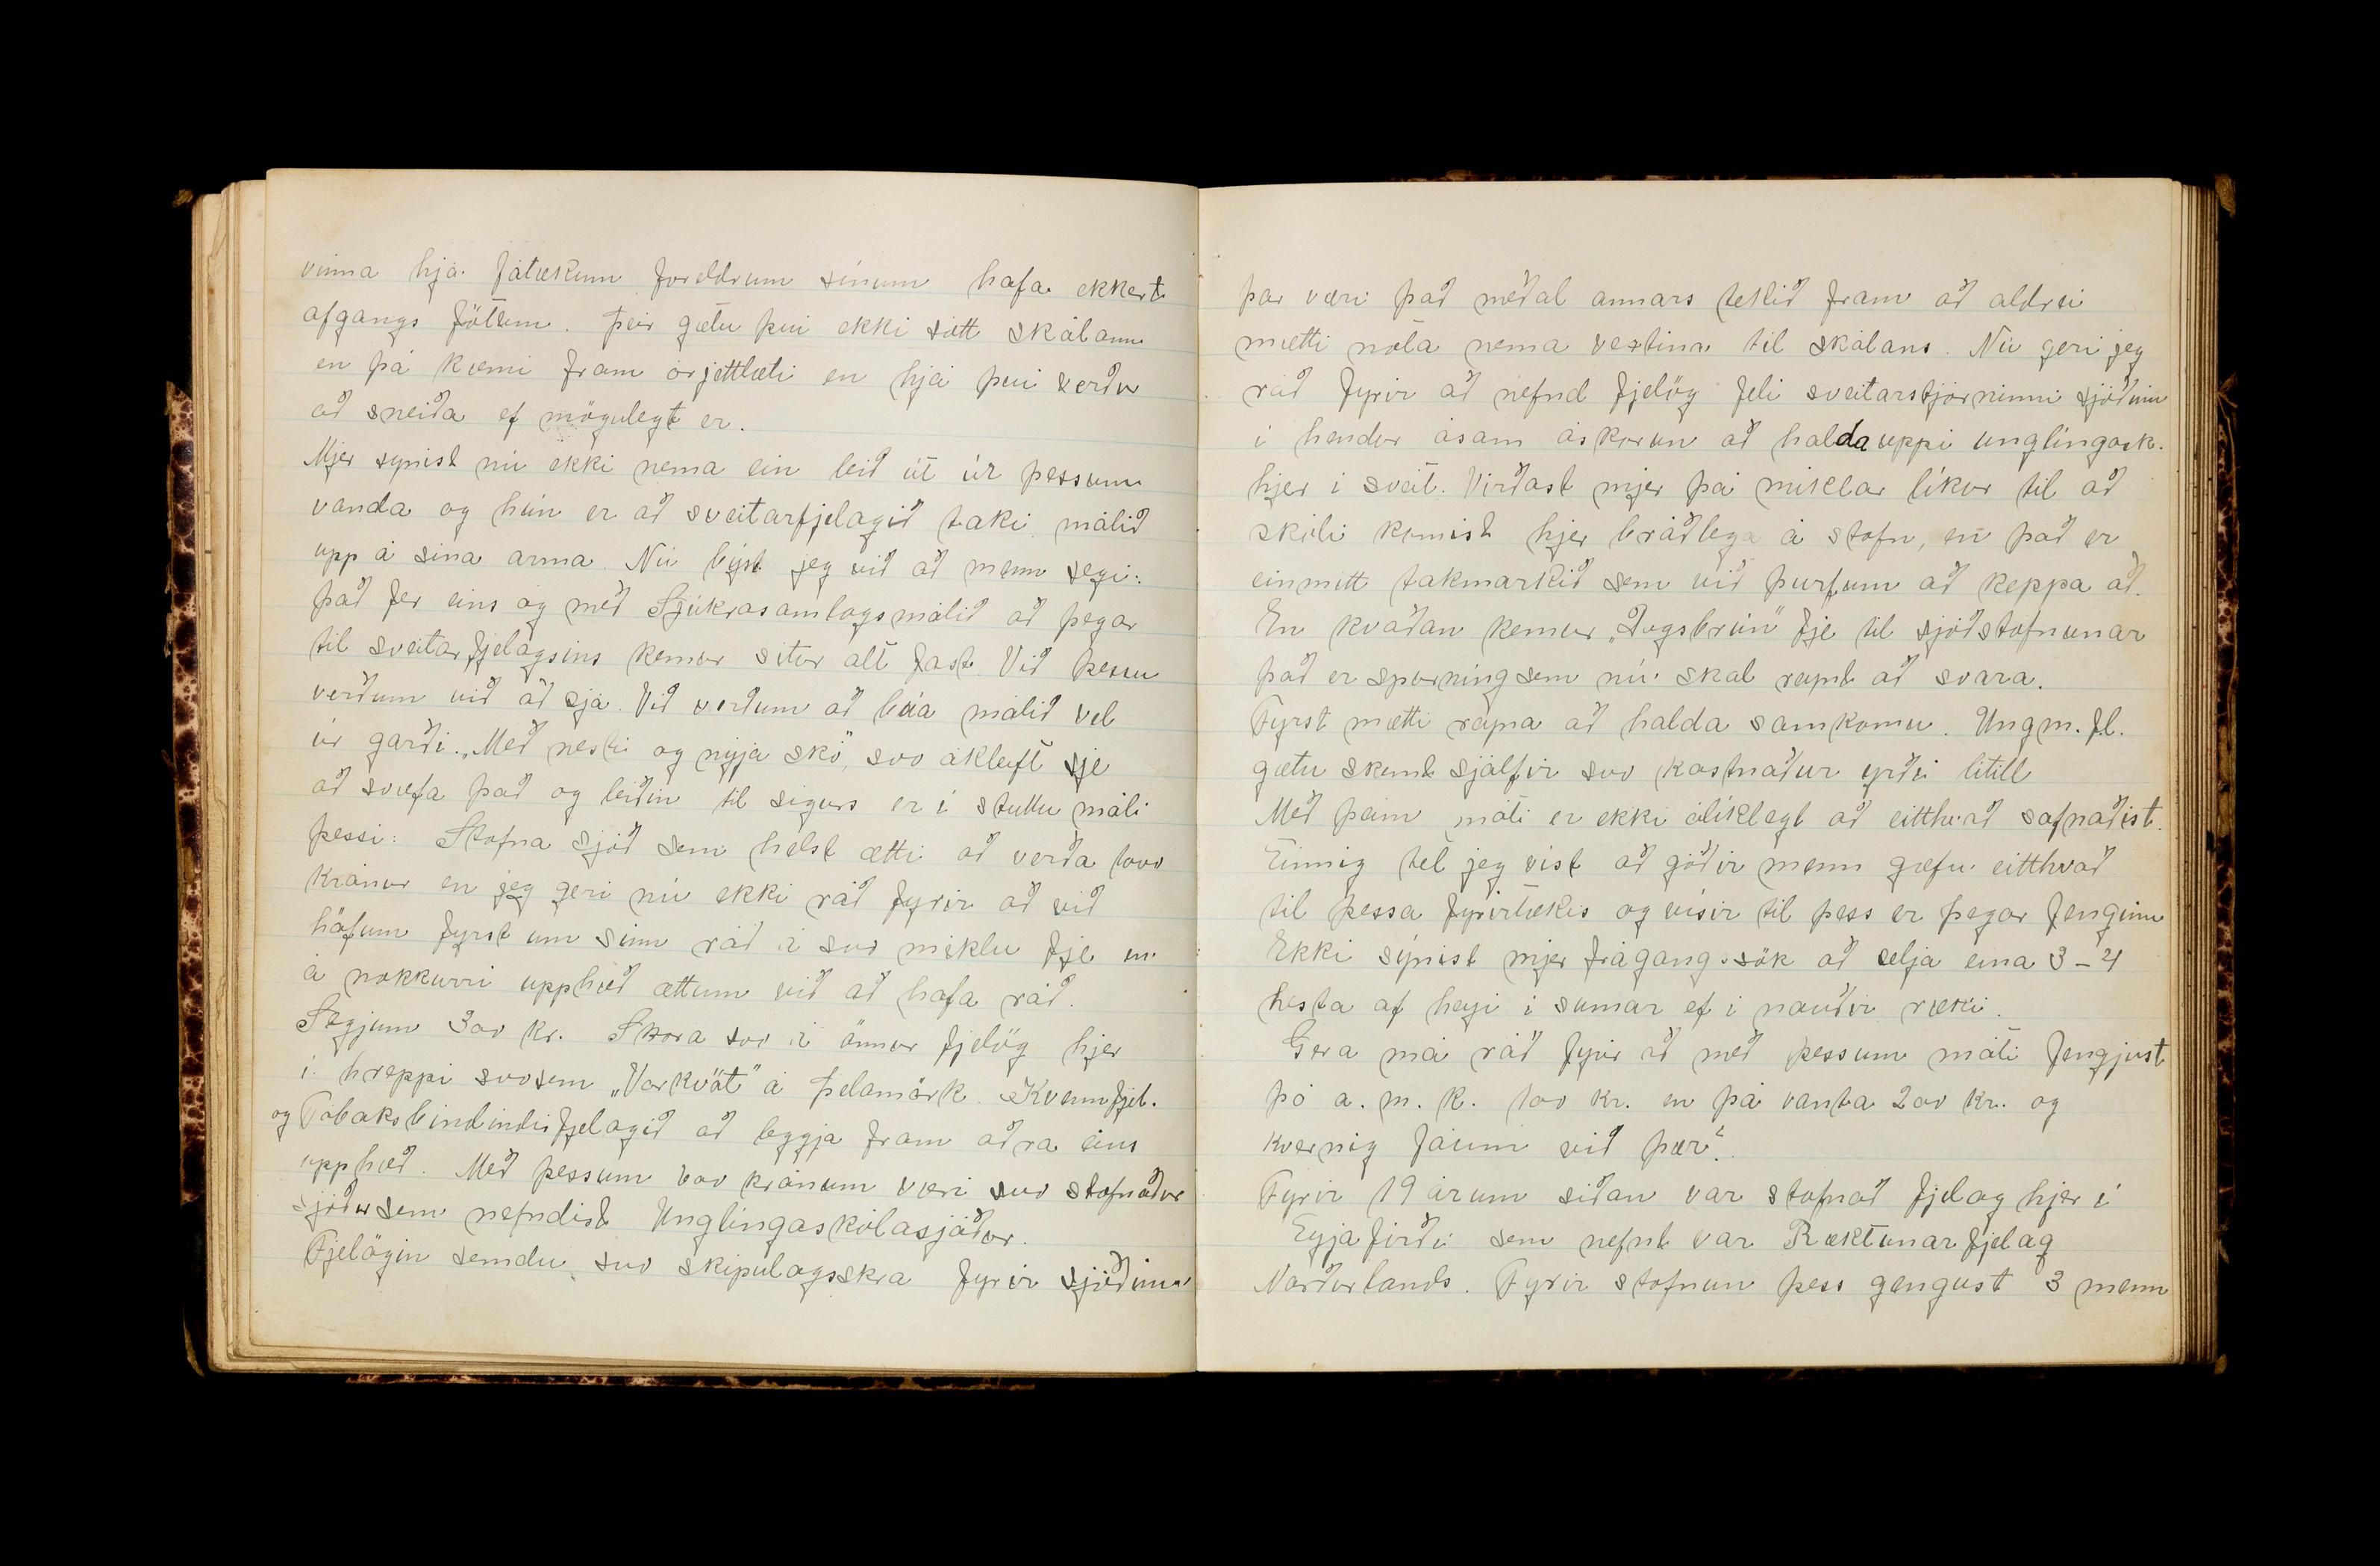 vinna hjá fátækum foreldrum sínum hafa ekkert
afgangs fötum. Þeir gætu því ekki sótt skólann
en þá kæmi fram órjettlæti en hjá því verðu
að sneiða ef mögulegt er.
Mjer synist nú ekki nema ein leið út úr þessum
vanda og hún er að sveitarfjelagið taki málið
upp á sína arma. Nú býst jeg við að menn segi:
það fer eins og með Sjúkrasamlagsmálið að þegar
til sveitarfjelagsins kemur situr alt fast. Við þessu
verðum við að sjá. Við verðum að búa málið vel
úr garði. „Með nesti og nýja skó", svo ókleift sje
að svæfa það og leiðin til sigurs er í stuttu máli
þessi: Stofna sjóð sem helst ætti að verða 1000
krónur en jeg geri nú ekki ráð fyrir að við
höfum fyrst um sinn ráð á svo miklu fje en
á nokkurri upphæð ættum við að hafa ráð.
Segjum 300 kr. Skora svo á önnur fjelög hjer
í hreppi svosem „Vorkvöt" á Þelamörk. Kvennfjel.
og Tóbaksbindindisfjelagið að leggja fram aðra eins
upphæð. Með þessum 600 krónum væri svo stofnaður
sjóður sem nefndist Unglingaskólasjóður.
Fjelögin semdu svo skipulagsskra fyrir sjóðinn
þar væri það meðal annars tekið fram að aldrei
mætti nota nema vextina til skólans. Nú geri jeg
ráð fyrir að nefnd fjelög feli sveitarstjórninni sjóðinn
í hendur ásam áskorun að halda uppi unglingask.
hjer í sveit. Virðast mjer þá miklar líkur til að
skóli komist hjer bráðlega á stofn, en það er
einmitt takmarkið sem við þurfum að keppa að.
En kvaðan kemur „Dagsbrún" fje til sjóðstofnunar
það er spurning sem nú skal reynt að svara.
Fyrst mætti reyna að halda samkomu. Ungm.fl.
gætu skemt sjálfir svo kostnaður yrði lítill
Með þeim móti er ekki ólíklegt að eitthvað safnaðist.
Einnig tel jeg víst að góðir menn gæfu eitthvað
til þessa fyrirtækis og vísir til þess er þegar fenginn
Ekki sýnist mjer frágangssök að selja eina 3-4
hesta af heyi í sumar ef í nauðir ræki.
Gera má ráð fyrir að með þessum móti fengjust
þó a. m. k. 100 kr. en þá vanta 200 kr. og
kvernig fáum við þær?
Fyrir 19 árum síðan var stofnað fjelag hjer í
Eyjafirði sem nefnt var Ræktunarfjelag
Norðurlands. Fyrir stofnun þess gengust 3 menn